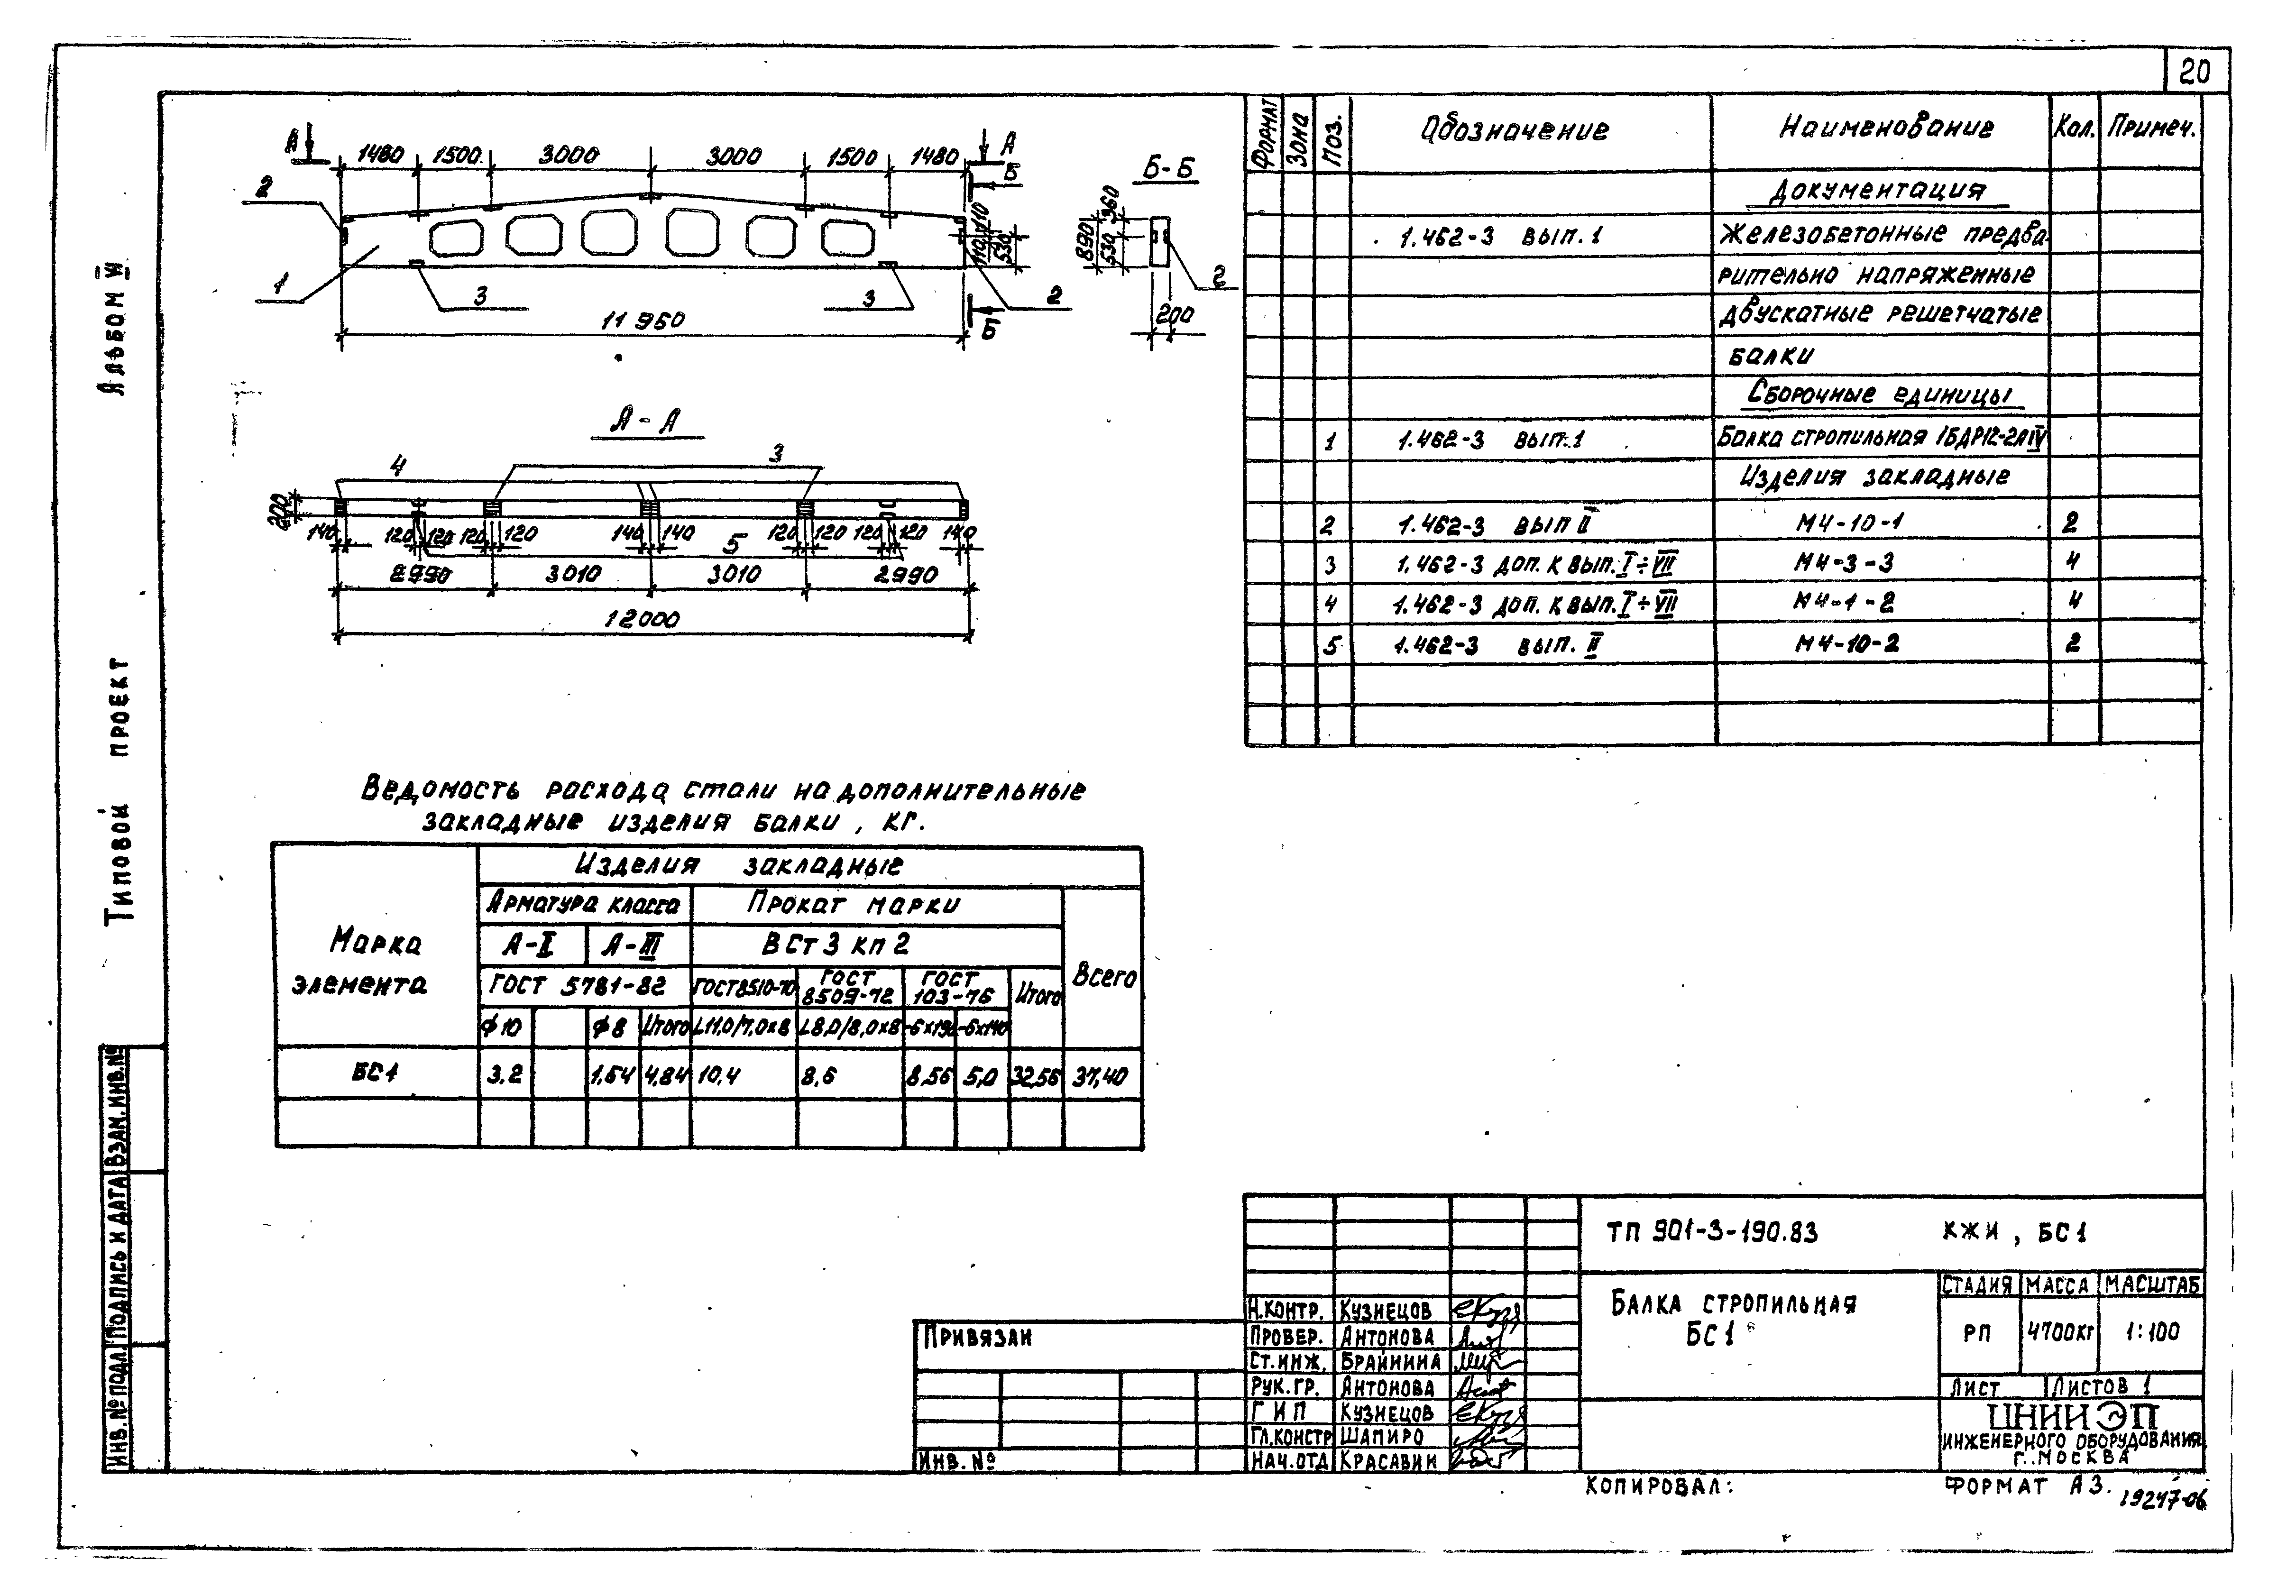 20
Альбом IV
Типовой проект
Инв.№ подл.
Подпись и дата
Взам.инв.№
А
А
Б
1480 1500 3000 3000 1500 1480
2
1
3
3
2
110
110
530
11960
Б
Б-Б
360
890
530
2
200
А-А
4
3
200
140 120 120 120 120 140 140 120 120 120 120 140
5
2990 3010 3010 2990
12000
Формат Зона Поз. Обозначение Наименование Кол. Примеч.
Документация
1.462-3 вып.1 Железобетонные предва-
рительно напряженные
двускатные решетчатые
балки
Сборочные единицы
1 1.462-3 вып.1 Балка стропильная 1БДР12-2АIV
Изделия закладные
2 1.462-3 вып II М4-10-1 2
3 1.462-3 доп. к вып. I÷VII М4-3-3 4
4 1.462-3 доп. к вып. I÷VII М4-1-2 4
5 1.462-3 вып. II М4-10-2 2
Ведомость расхода стали на дополнительные
закладные изделия балки, кг.
Марка элемента
Изделия закладные
Арматура класса Прокат марки
А-I А-III ВСт3кп2
Всего
ГОСТ 5781-82 ГОСТ8510-70 ГОСТ 8509-72 ГОСТ 103-76 Итого
ф10 ф8 Итого L11,0/7,0х8 L8,0/8,0х8 -6х190 -6х140
БС1 3,2 1,64 4,84 10,4 8,6 8,56 5,0 32,56 37,40
ТП 901-3-190.83 КЖИ, БС1
Балка стропильная
БС1
Стадия Масса Масштаб
РП 4700кг 1:100
Лист Листов 1
ЦНИИЭП
инженерного оборудования
г. Москва
Н.контр. Кузнецов
Провер. Антонова
Ст.инж. Брайнина
Рук.гр. Антонова
ГИП Кузнецов
Гл.констр Шапиро
Нач.отд Красавин
Привязан
Инв.№
Копировал:
Формат А3.
19247-06